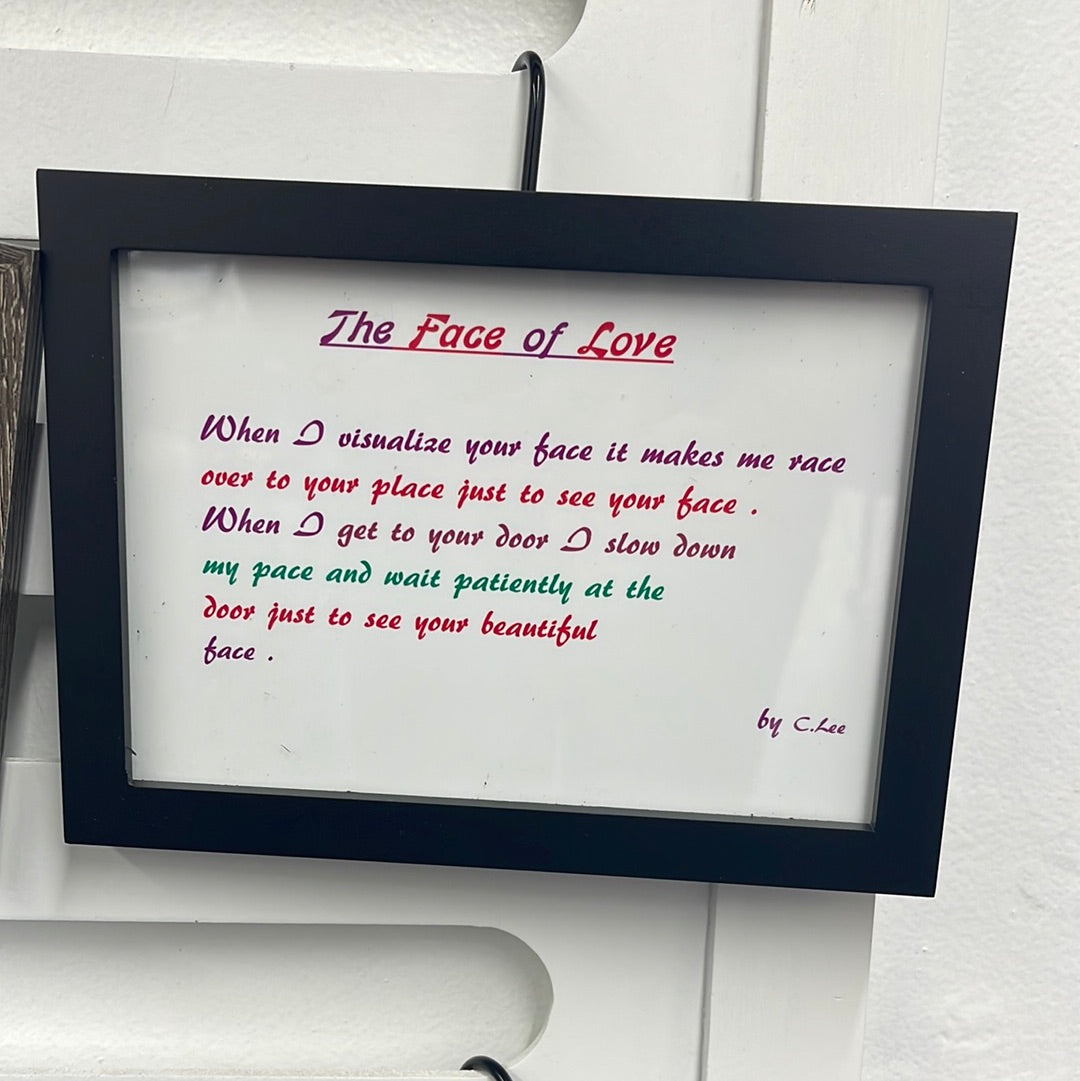 The Face of Love
When I visualize your face it makes me race
over to your place just to see your face .
When I get to your door I slow down
my pace and wait patiently at the
door just to see your beautiful
face .
by C.Lee